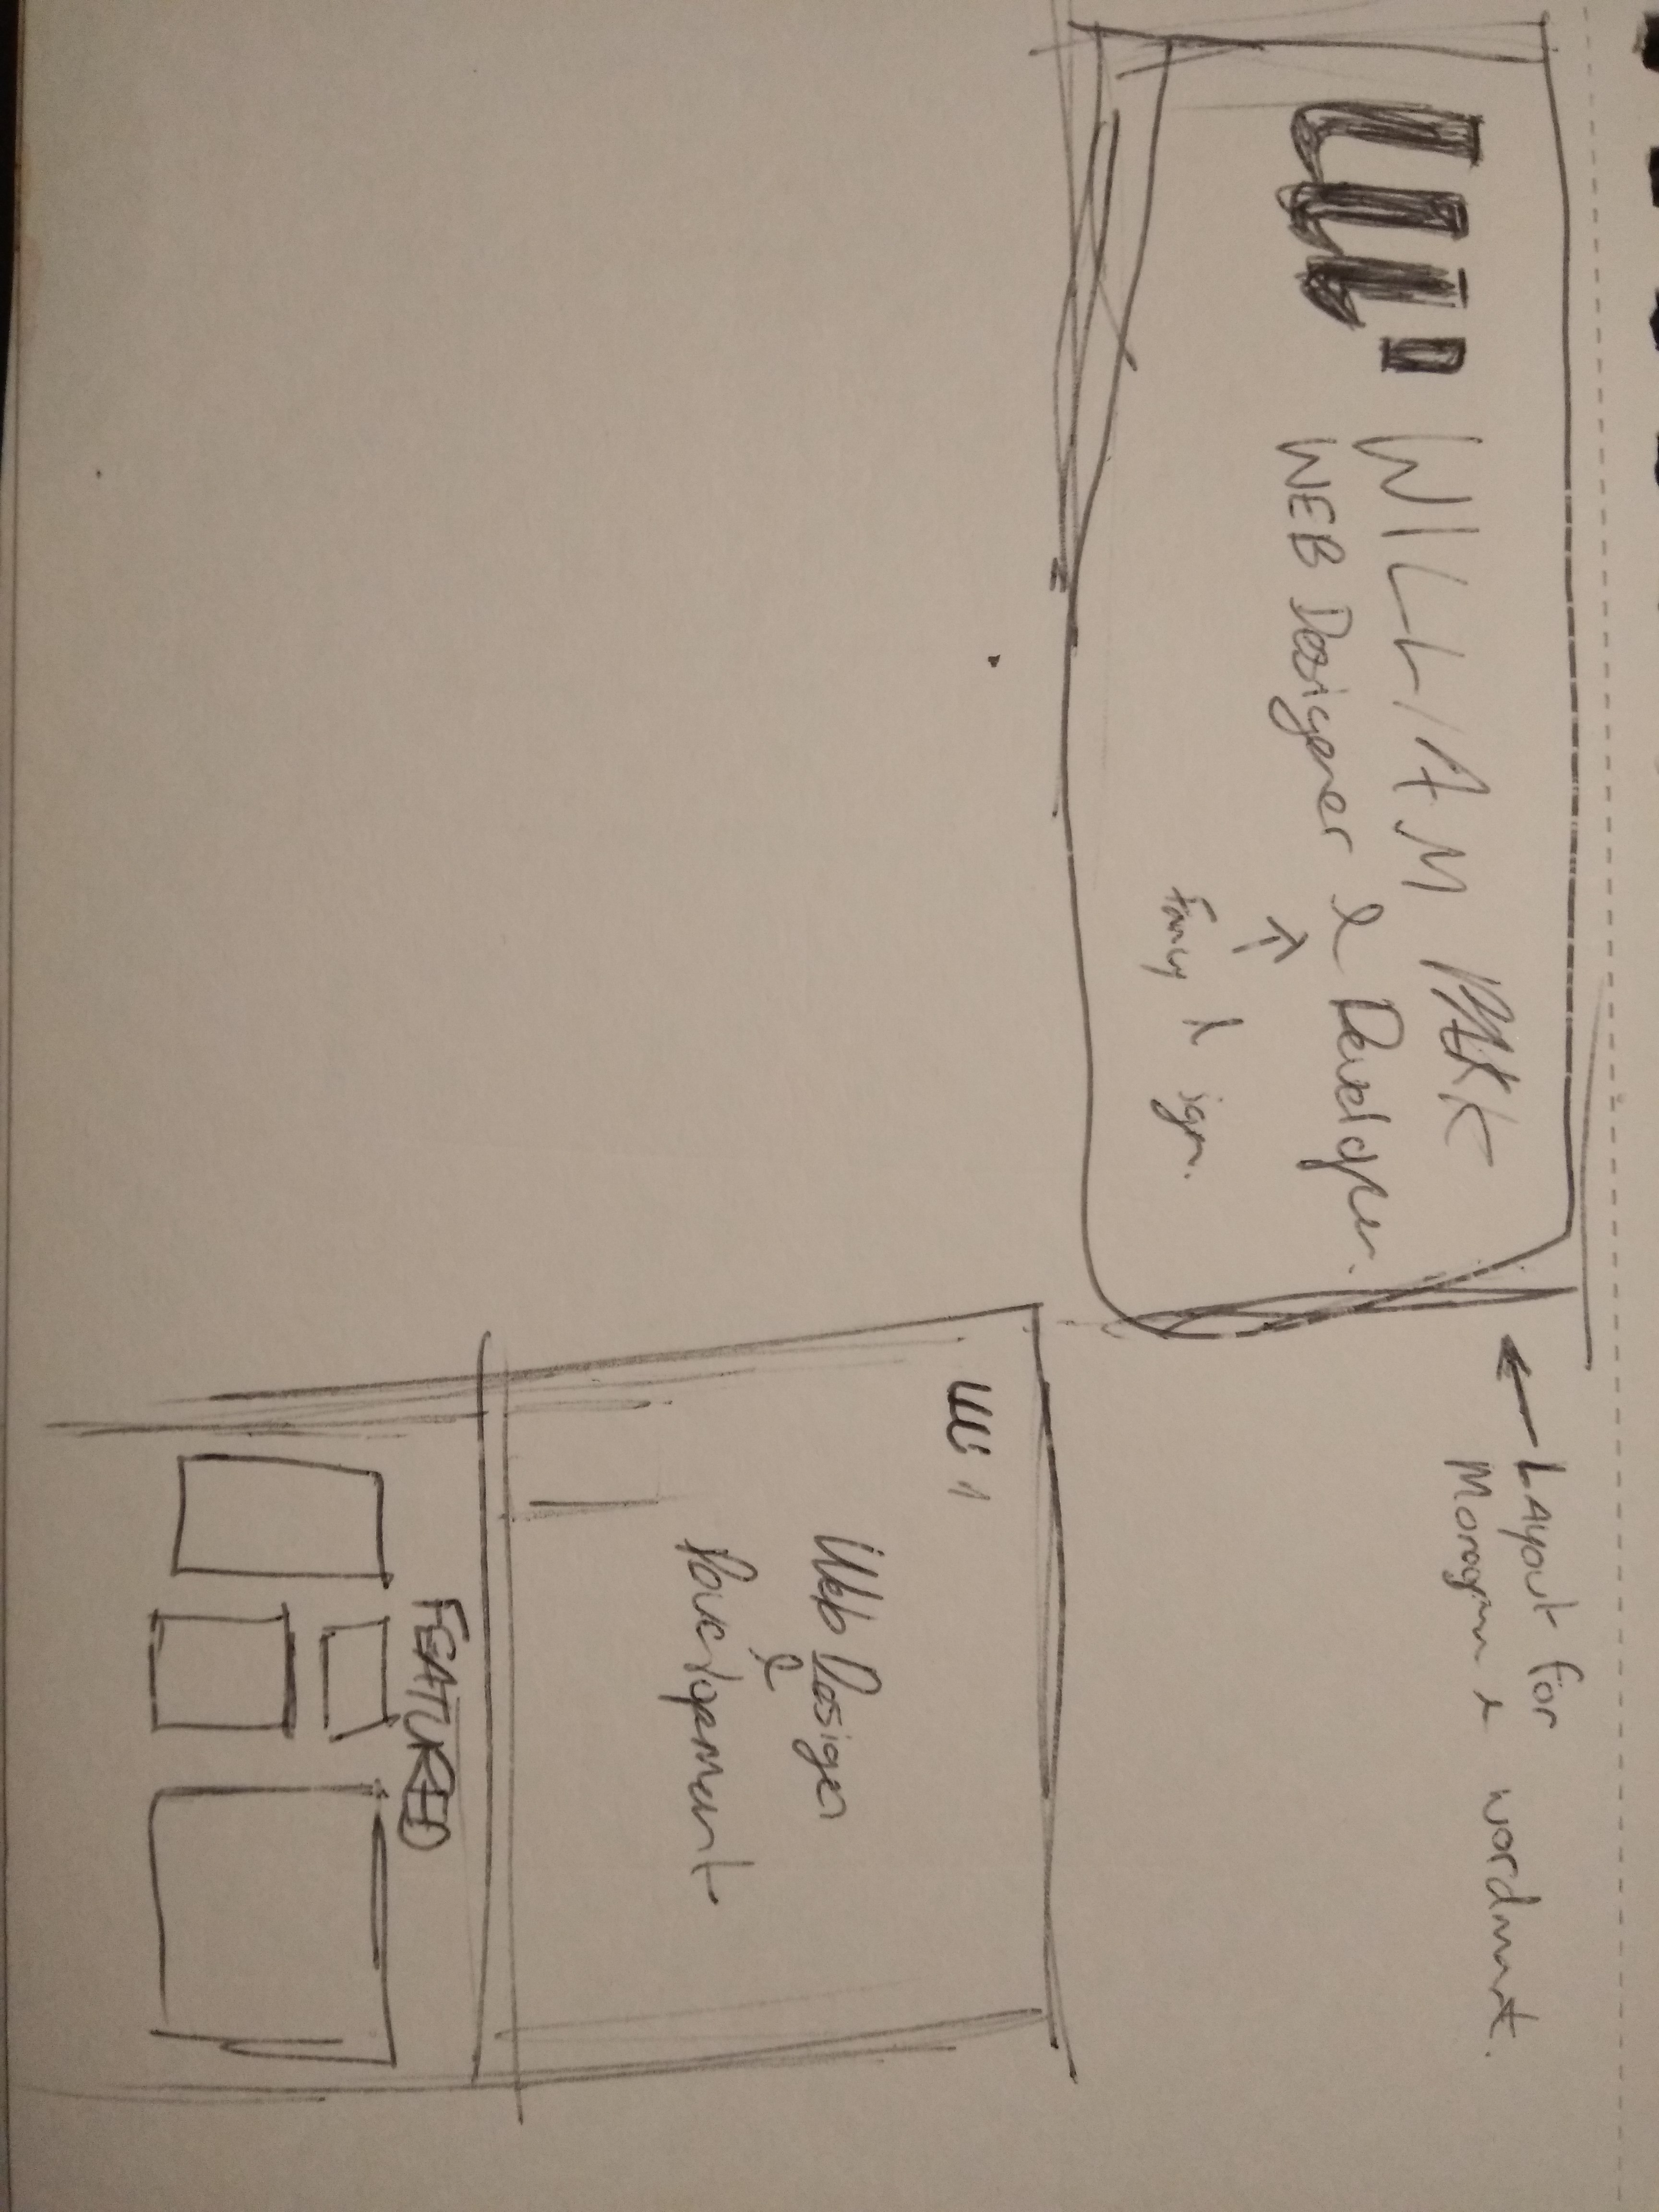 WILLIAM
WEB Designer & Developer.
↑
Fancy & sign.
← LAYOUT for
Monogram & wordmark.
Web Design
&
Development
FEATURED